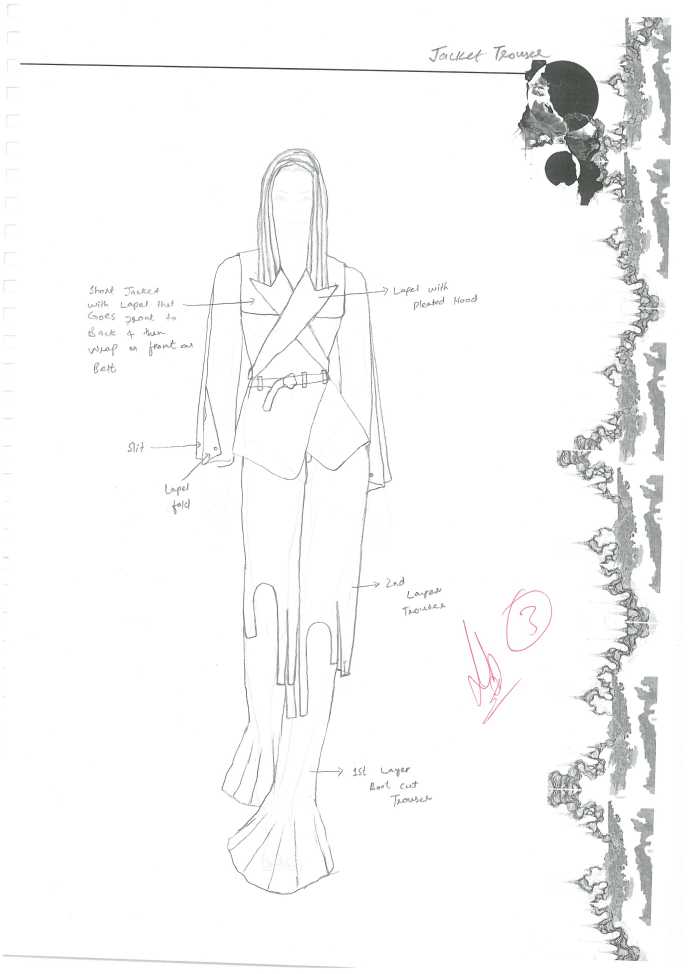 Jacket Trouser
Short Jacket
with Lapel that
Goes front to
Back & then
Wrap on front as
Belt
Lapel with
pleated Hood
Slit
Lapel
fold
2nd
Layer
Trouser
3
1st Layer
Boot cut
Trouser